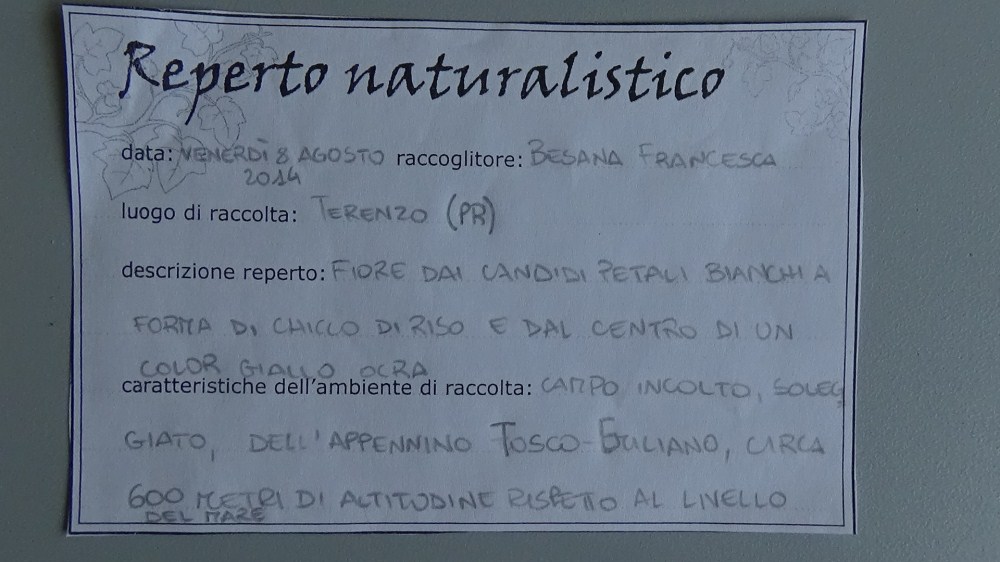 Reperto naturalistico
data: VENERDÌ 8 AGOSTO raccoglitore: BESANA FRANCESCA
2014
luogo di raccolta: TERENZO (PR)
descrizione reperto: FIORE DAI CANDIDI PETALI BIANCHI A
FORMA DI CHICCO DI RISO E DAL CENTRO DI UN
COLOR GIALLO OCRA
caratteristiche dell'ambiente di raccolta: CAMPO INCOLTO, SOLEG
GIATO, DELL'APPENNINO TOSCO-EMILIANO, CIRCA
600 METRI DI ALTITUDINE RISPETTO AL LIVELLO
DEL MARE